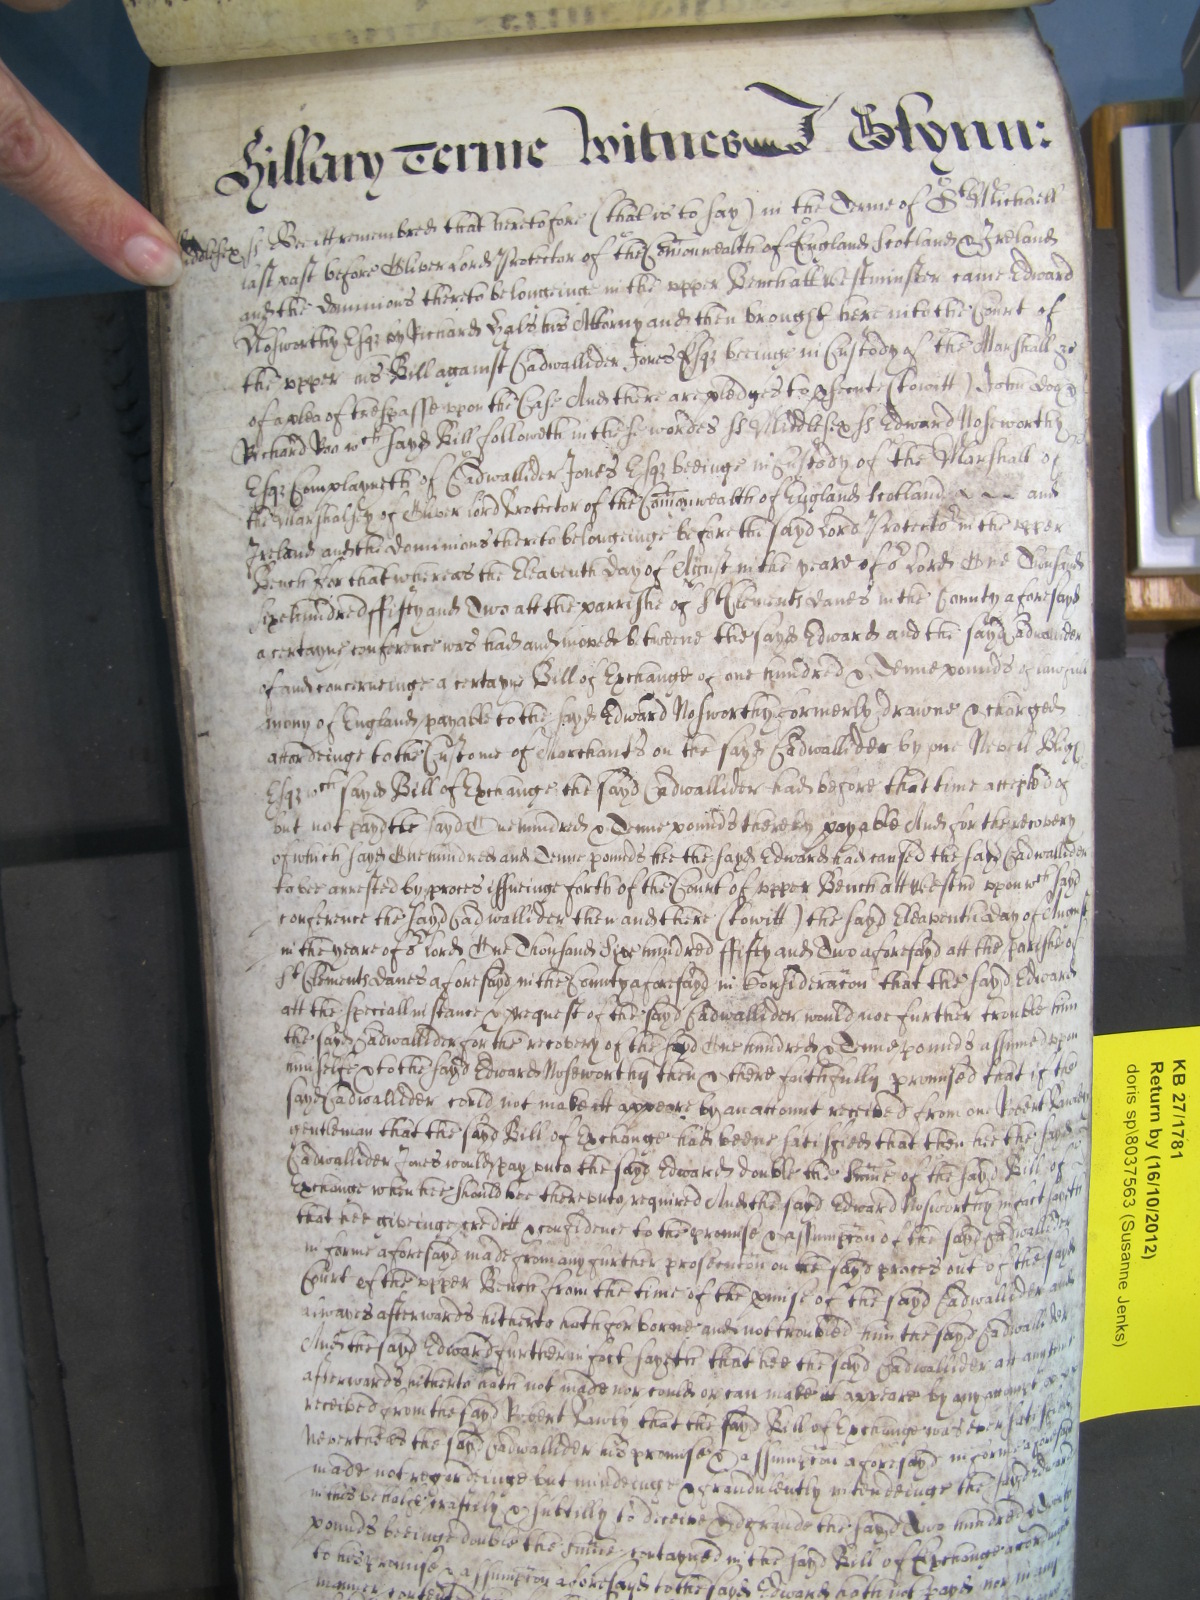 Hillary Terme Witnes J Glynn:
Middlesex ss Bee itt remembred that heretofore (that is to say) in the Terme of St Michaell
last past before Oliver Lord Protector of the Comonwealth of England Scotland & Ireland
and the dominions thereto belongeinge in the upper Bench att Westminster came Edward
Nosworthy Esqr by Richard Hals his Attorny and then brought here into the Court of
the upper his Bill against Cadwallider Jones Esqr beeinge in Custody of the Marshall &c
of a plea of trespasse upon the Case And there are pledges to psecute (towitt) John Doo &
Richard Roo wch sayd Bill followeth in these wordes ss Middlesex ss Edward Noseworthy
Esqr Complayneth of Cadwallider Jones Esqr beeinge in Custody of the Marshall of
the Marshalsey of Oliver lord Protector of the Comonwealth of England Scotland and
Ireland and the dominions thereto belongeinge before the sayd Lord Protector in the upper
Bench For that whereas the Eleaventh day of August in the yeare of or Lord One Thousand
Six hundred ffifty and Two att the parrishe of St Clements danes in the County aforesayd
a certayne conference was had and moved betweene the sayd Edward and the sayd Cadwallider
of and concerneinge a certayne Bill of Exchange of one hundred & Tenne pounds of lawfull
mony of England payable to the sayd Edward Nosworthy formerly drawne & charged
accordeinge to the Custome of Marchants on the sayd Cadwallider by one Nevell
Esqr wch sayd Bill of Exchange the sayd Cadwallider had before that time accepted of
but not payd the sayd One hundred & Tenne pounds thereby payable And for the recovery
of which sayd One hundred and Tenne pounds hee the sayd Edward had caused the sayd Cadwallider
to bee arrested by proces issueinge forth of the Court of upper Bench att Westmr upon wch sayd
conference the sayd Cadwallider then and there (towitt) the sayd Eleaventh day of August
in the yeare of or Lord One Thousand Six hundred ffifty and Two aforesayd att the parishe of
St Clements danes aforesayd in the County aforesayd in Consideracon that the sayd Edward
att the speciall instance & request of the sayd Cadwallider would not further trouble him
the sayd Cadwallider for the recovery of the sayd One hundred & Tenne pounds assumed upon
himselfe & to the sayd Edward Noseworthy then & there faithfully promised that if the
sayd Cadwallider could not make itt appeare by an account received from one Robert
gentleman that the sayd Bill of Exchange had beene satisfied that then hee the sayd
Cadwallider Jones would pay unto the sayd Edward double the sume of the sayd Bill of
Exchange when hee should bee thereunto required And the sayd Edward Nosworthy in fact sayeth
that hee giveinge creditt & confidence to the promise & assumpcon of the sayd Cadwallider
in forme aforesayd made from any further prosecucon on the sayd proces out of the sayd
Court of the upper Bench from the time of the pmise of the sayd Cadwallider and
alwayes afterwards hitherto hath forborne and not troubled him the sayd Cadwallider
And the sayd Edward further in fact sayeth that hee the sayd Cadwallider att any time
afterwards hitherto hath not made nor could or can make itt appeare by any account
received from the sayd Robert that the sayd Bill of Exchange was ever satisfied
Neverthelesse the sayd Cadwallider his promise & assumpcon aforesayd in forme aforesayd
made not regardeinge but mindeinge & fraudulently intendeinge the sayd Edward
in this behalfe craftily & suttilly to deceive & defraude the sayd Two hundred & Twenty
pounds beeinge double the sume contayned in the sayd Bill of Exchange accordinge
to his promise & assumpcon aforesayd to the sayd Edward hath not payd nor in any
manner
KB 27/1781
Return by (16/10/2012)
doris sp\8037563 (Susanne Jenks)